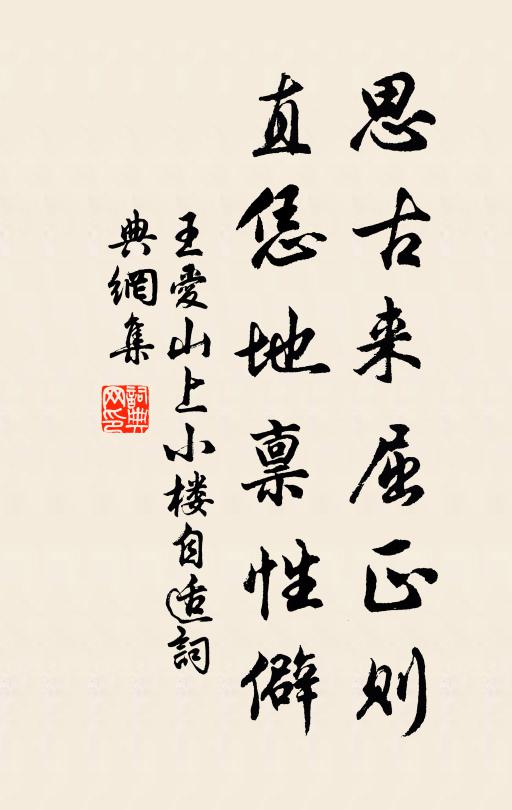 思古来屈正则
直恁地禀性僻
王爱山上小楼自适詞
典網集
詞典网印